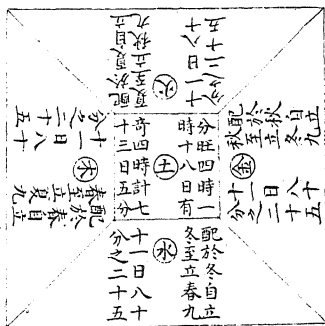 火
配於夏自立
夏至立秋九
十一日八十
分之二十五
金
配於秋自立
秋至立冬九
十一日八十
分之二十五
土
分旺四時一
時十八日有
奇四時計七
十三日五分
木
配於春自立
春至立夏九
十一日八十
分之二十五
水
配於冬自立
冬至立春九
十一日八十
分之二十五